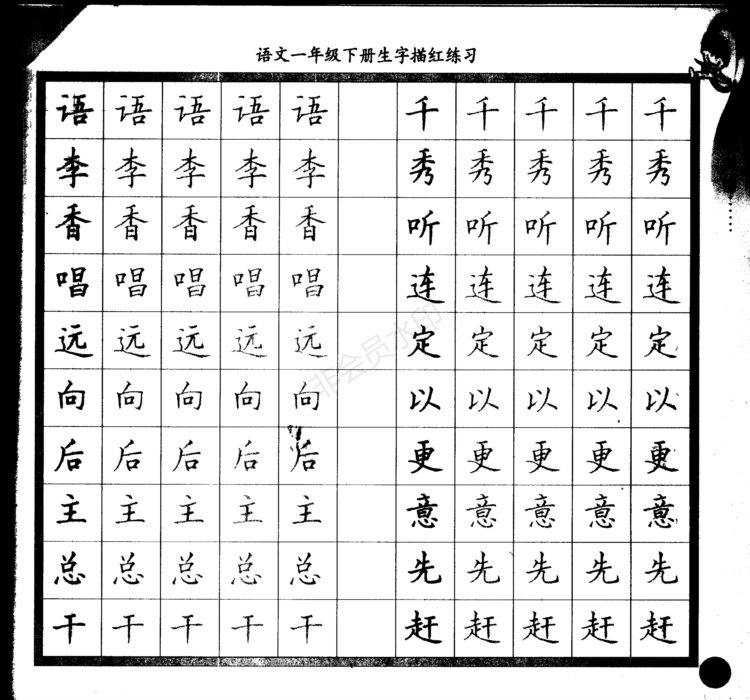 语文一年级下册生字描红练习
语 语 语 语 语 千 千 千 千 千
李 李 李 李 李 秀 秀 秀 秀 秀
香 香 香 香 香 听 听 听 听 听
唱 唱 唱 唱 唱 连 连 连 连 连
远 远 远 远 远 定 定 定 定 定
向 向 向 向 向 以 以 以 以 以
后 后 后 后 后 更 更 更 更 更
主 主 主 主 主 意 意 意 意 意
总 总 总 总 总 先 先 先 先 先
干 干 干 干 干 赶 赶 赶 赶 赶
非会员水印